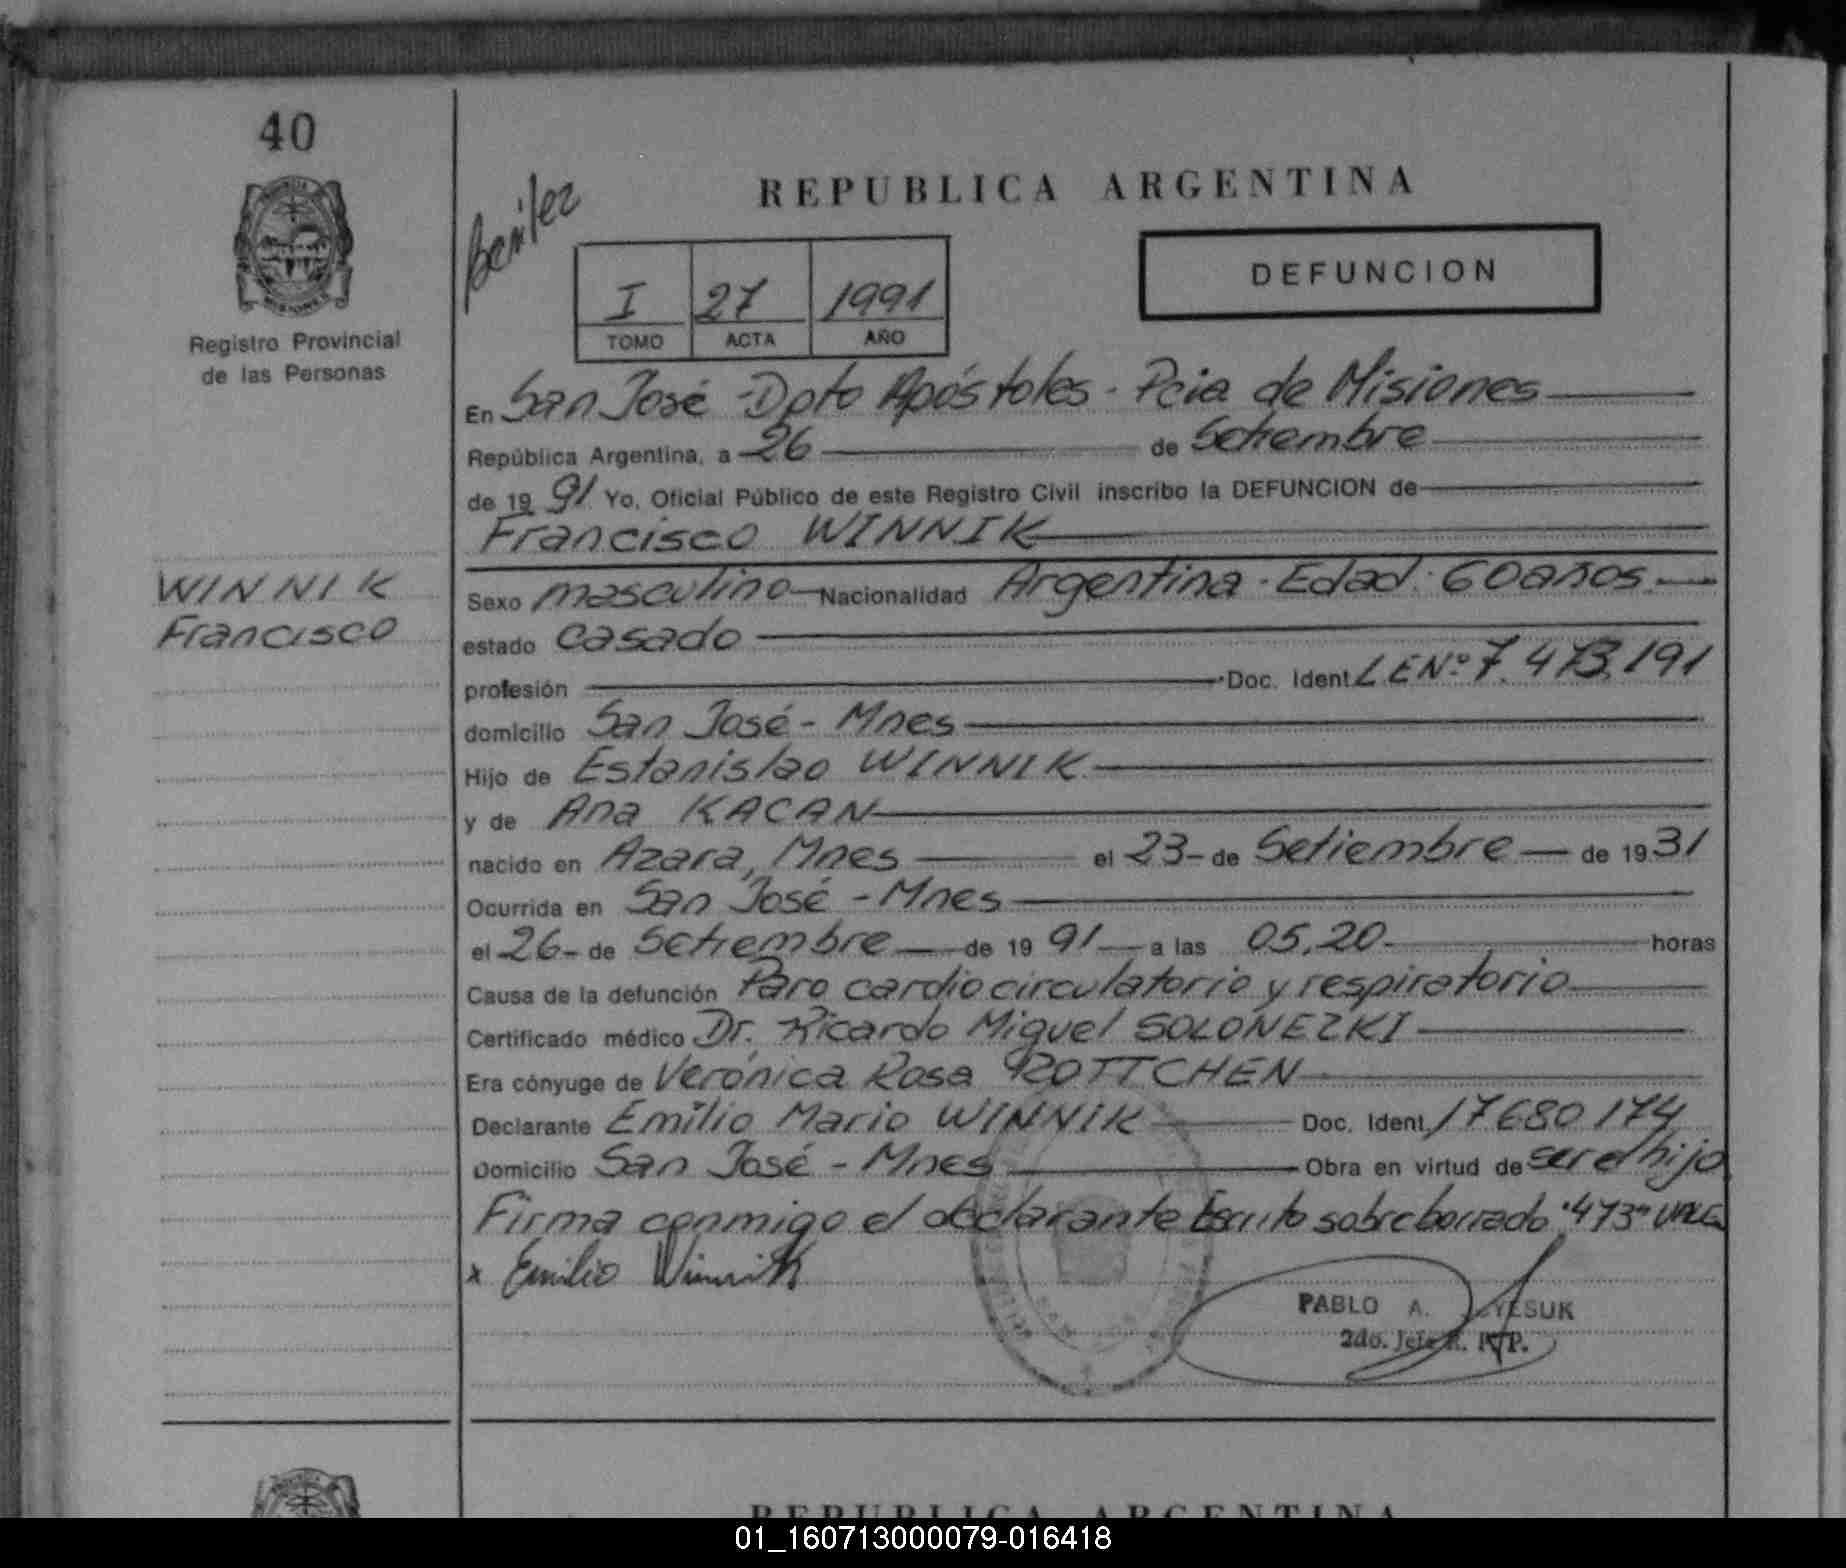 40
Registro Provincial
de las Personas
Benitez
REPUBLICA ARGENTINA
I 27 1991
TOMO ACTA AÑO
DEFUNCION
En San José - Dpto Apóstoles - Pcia de Misiones
República Argentina, a 26 de Setiembre
de 19 91 Yo, Oficial Público de este Registro Civil inscribo la DEFUNCION de
Francisco WINNIK
WINNIK
Francisco
Sexo masculino Nacionalidad Argentina - Edad: 60 años.
estado casado
profesión Doc. Ident LE Nº 7.473.191
domicilio San José - Mnes
Hijo de Estanislao WINNIK
y de Ana KACAN
nacido en Azara, Mnes el 23 de Setiembre de 1931
Ocurrida en San José - Mnes
el 26 de Setiembre de 19 91 a las 05,20 horas
Causa de la defunción Paro cardiocirculatorio y respiratorio
Certificado médico Dr. Ricardo Miguel SOLONEZKI
Era cónyuge de Verónica Rosa ROTTCHEN
Declarante Emilio Mario WINNIK Doc. Ident. 17680174
Domicilio San José - Mnes Obra en virtud de ser el hijo
Firma conmigo el declarante Escrito sobre borrado "473" VALE
x Emilio Winnik
PABLO A.
2do. Jefe R. P. P.
REPUBLICA ARGENTINA
01_160713000079-016418